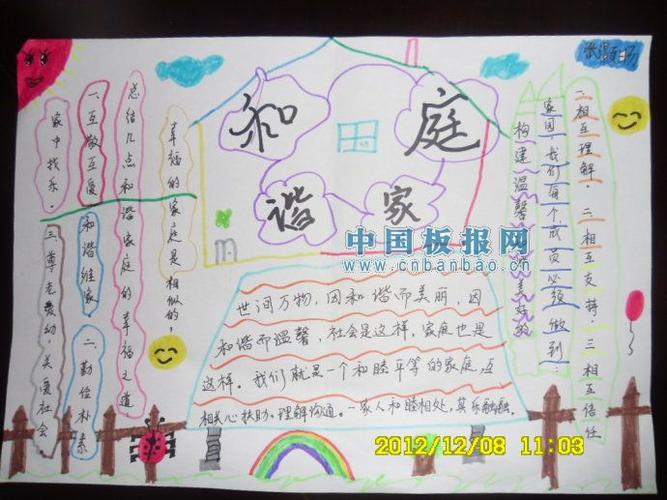 和谐家庭
幸福的家庭是相似的,
总结几点和谐家庭的幸福之道
一、互敬互爱
和谐维家
二、勤俭朴素
家中找乐.
三、尊老爱幼,关爱社会
世间万物,因和谐而美丽,因
和谐而温馨,社会是这样,家庭也是
这样。我们就是一个和睦平等的家庭,互
相关心扶助、理解沟通。一家人和睦相处,其乐融融。
构建温馨和谐美好的
家园,我们每个成员必须做到:
一相互理解.二相互支持.三相互信任
中国板报网
www.cnbanbao.cn
2012/12/08 11:03